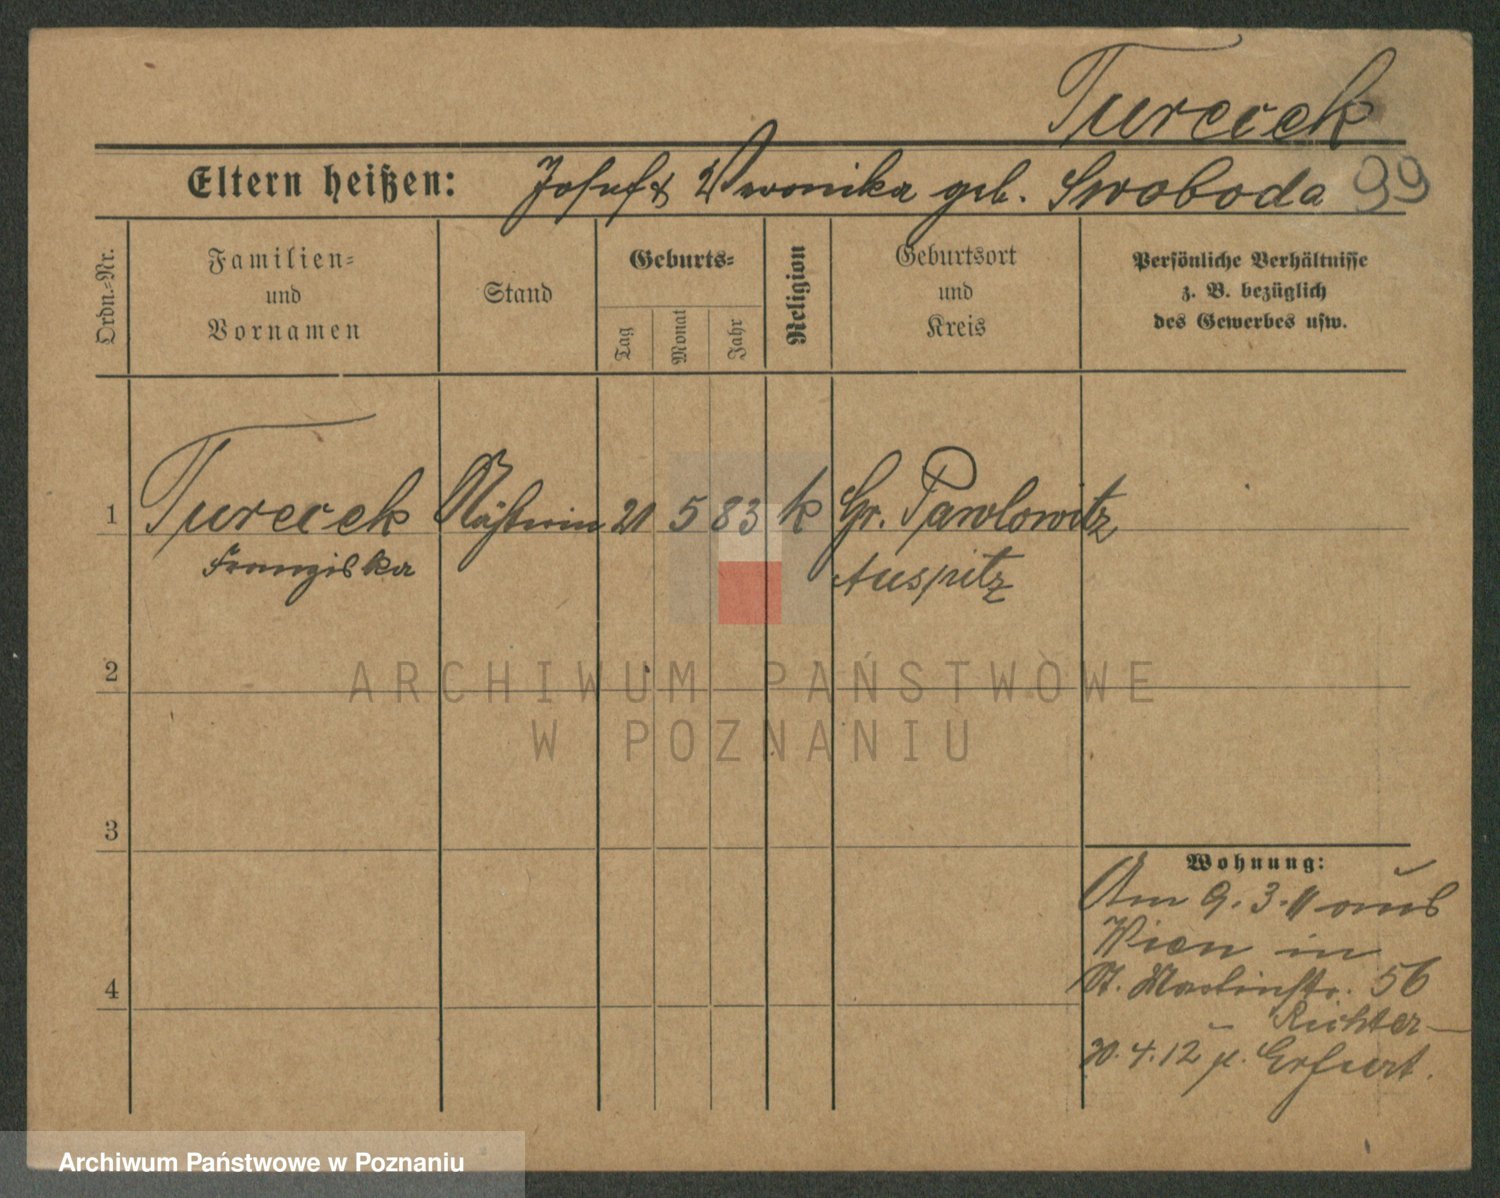 Turecek
Eltern heißen: Josef & Veronika geb. Swoboda 99
Ordn.-Nr.
Familien-
und
Vornamen
Stand
Geburts-
Tag
Monat
Jahr
Religion
Geburtsort
und
Kreis
Persönliche Verhältnisse
z. B. bezüglich
des Gewerbes usw.
1 Turecek Näherin 21 5 83 k Gr. Pawlowitz
Franziska Auspitz
2
3
4
Wohnung:
Am 9. 3. 11 aus
Wien in
St. Martinstr. 56
Richter
30. 4. 12 n. Erfurt.
ARCHIWUM PAŃSTWOWE
W POZNANIU
Archiwum Państwowe w Poznaniu